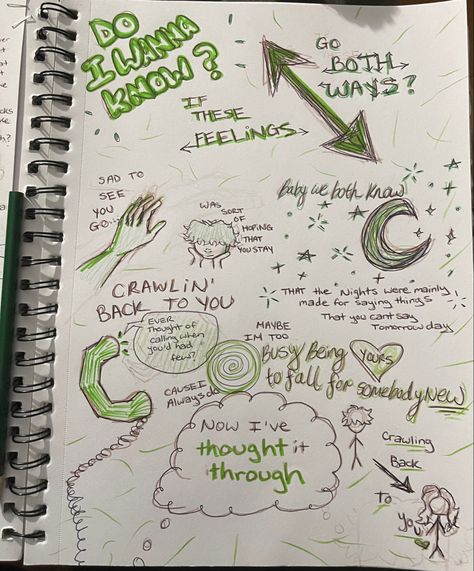 DO
I WANNA
KNOW?
IF
THESE
FEELINGS
GO
BOTH
WAYS?
SAD TO
SEE
YOU
GO...
WAS
SORT
OF
HOPING
THAT
YOU STAY
Baby we both know
THAT the "Nights were mainly
made for saying things
That you cant say
Tomorrow day
CRAWLIN'
BACK TO YOU
EVER
Thought of
calling when
you'd had
few?
CAUSE I
Always do
MAYBE
IM TOO
BUSY BEING
YOURS
to fall for somebody NEW
Now I've
thought it
through
Crawling
Back
To
You